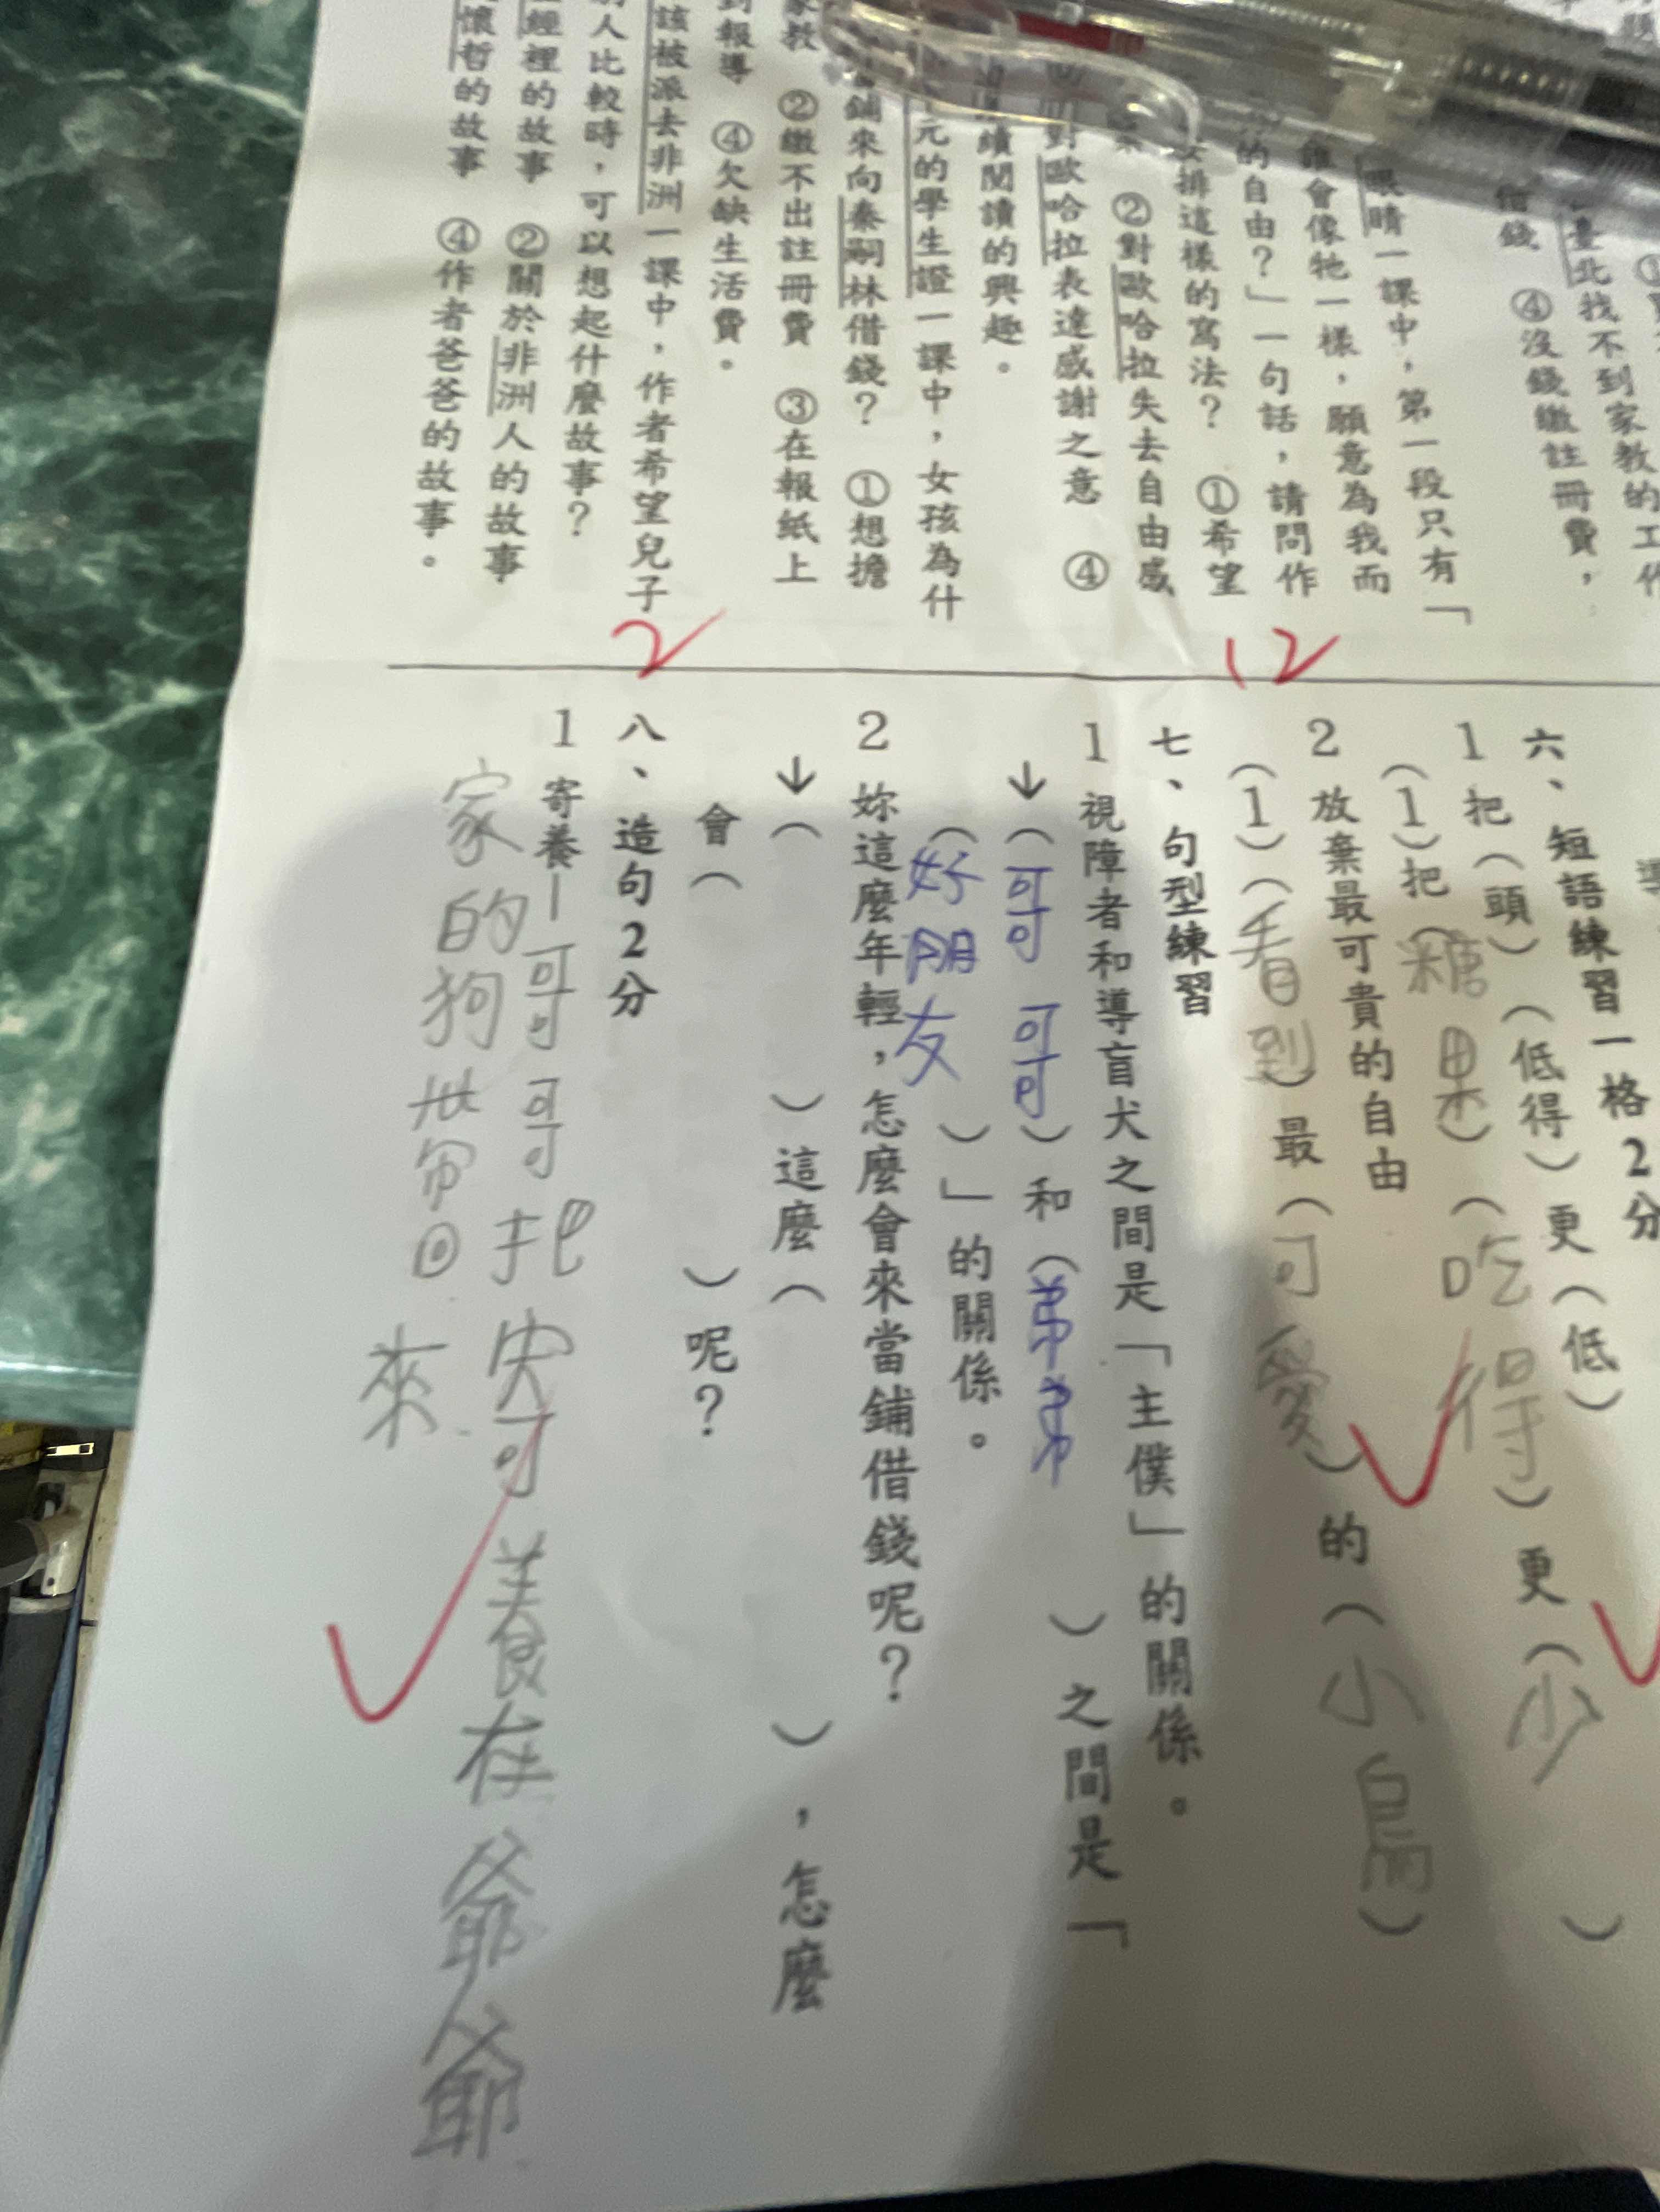 ①
臺北找不到家教的工作
借錢 ④沒錢繳註冊費，
眼睛一課中，第一段只有「
誰會像牠一樣，願意為我而
的自由？」一句話，請問作
安排這樣的寫法？ ①希望
②對歐哈拉失去自由感
對歐哈拉表達感謝之意 ④
續閱讀的興趣。
元的學生證一課中，女孩為什
鋪來向秦嗣林借錢？ ①想擔
家教 ②繳不出註冊費 ③在報紙上
到報導 ④欠缺生活費。
該被派去非洲一課中，作者希望兒子
別人比較時，可以想起什麼故事？
經裡的故事 ②關於非洲人的故事
懷哲的故事 ④作者爸爸的故事。
12
2
六、短語練習一格2分
1 把（頭）（低得）更（低）
（1）把（糖果）（吃得）更（少）
2 放棄最可貴的自由
（1）（看到）最（可愛）的（小鳥）
七、句型練習
1 視障者和導盲犬之間是「主僕」的關係。
↓（哥哥）和（弟弟）之間是「
（好朋友）」的關係。
2 妳這麼年輕，怎麼會來當鋪借錢呢？
↓（ ）這麼（ ），怎麼
會（ ）呢？
八、造句2分
1 寄養－哥哥把寄養在爺爺
家的狗帶回來